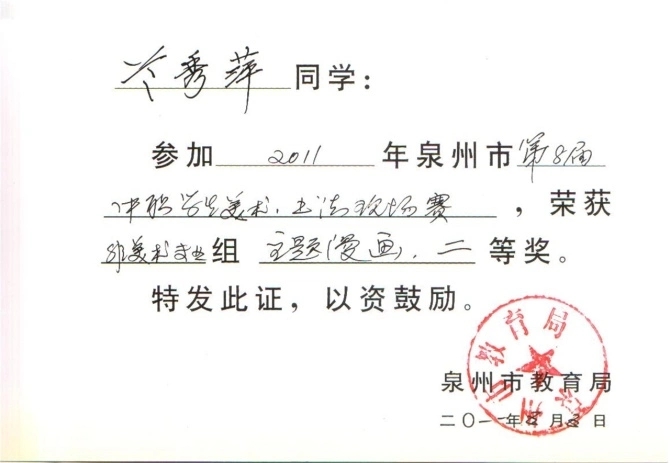 秀萍同学：
参加2011年泉州市第8届
中职学生美术、书法现场赛，荣获
非美术专业组主题漫画、二等奖。
特发此证，以资鼓励。
泉州市教育局
二〇一一年月日
泉州市教育局